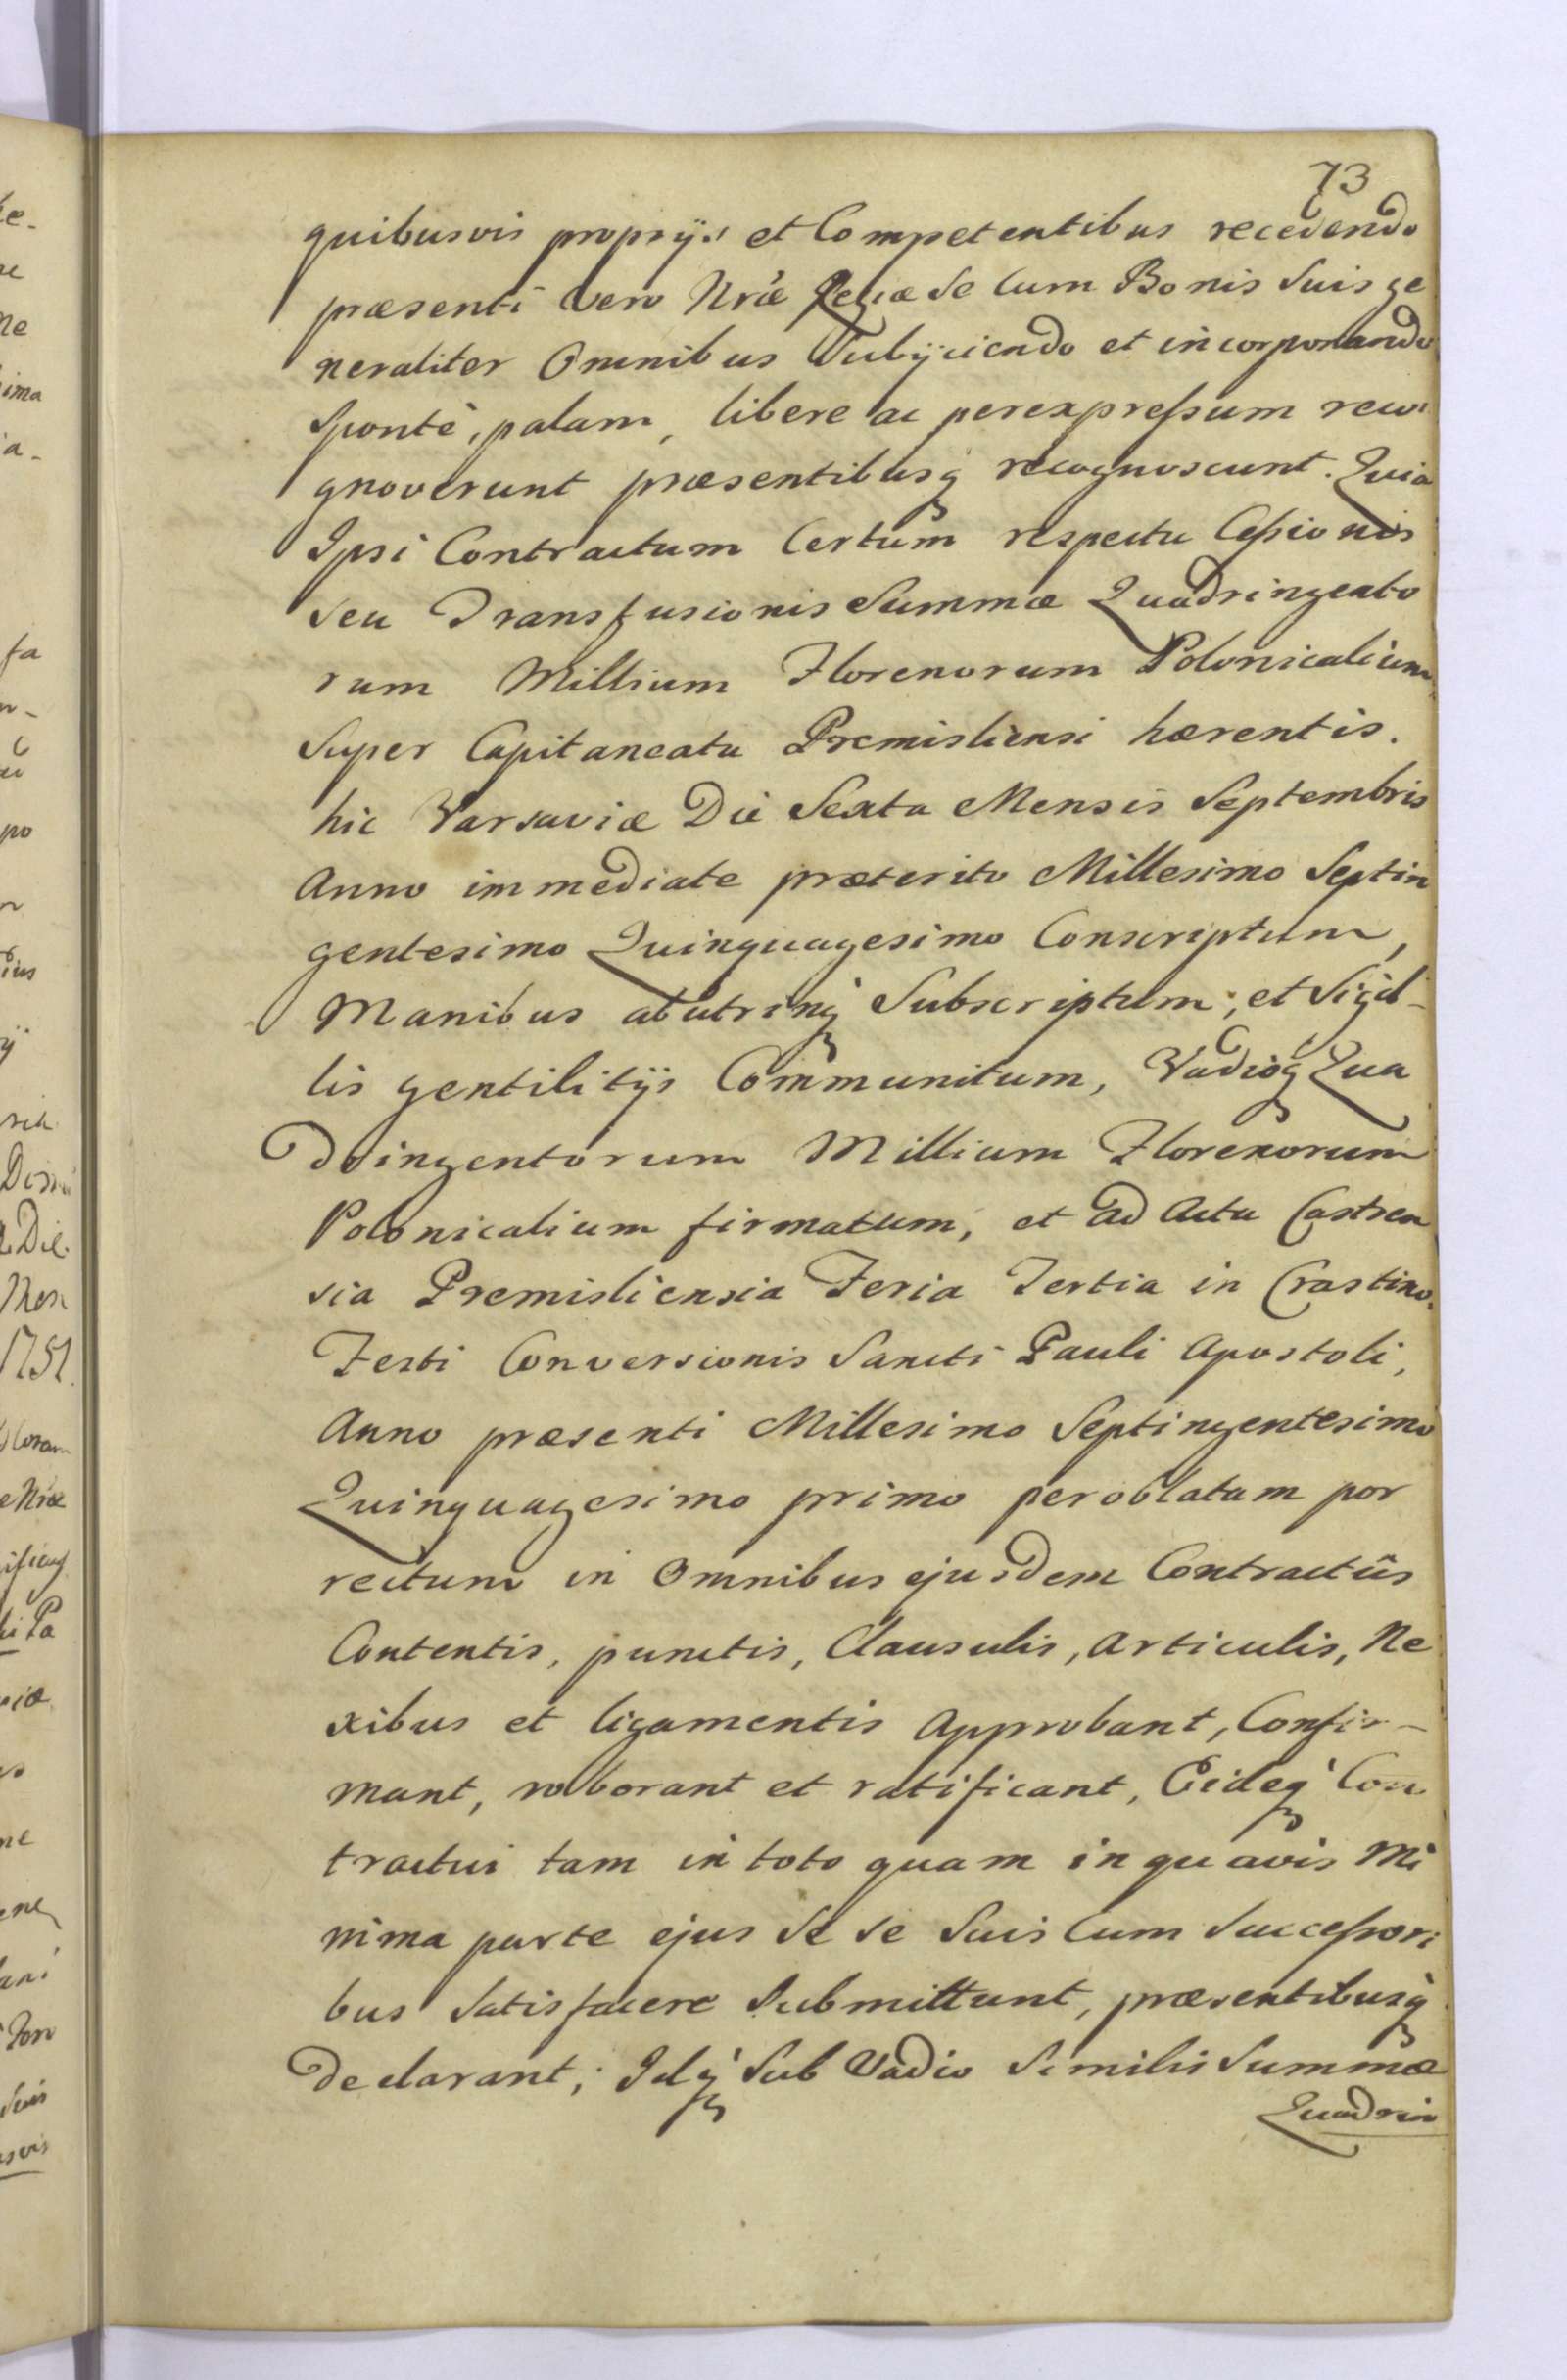 73
quibusvis proprijs et Competentibus recedendo
præsenti vero Nræ Regiæ se cum Bonis suis ge
neraliter Omnibus Subijciendo et incorporando
sponte, palam, libere ac perexpreſsum reco
gnoverunt præsentibusq recognoscunt. Quia
Ipsi Contractum Certum respectu Ceſsionis
seu Transfusionis Summæ Quadringento
rum Millium Florenorum Polonicalium
Super Capitaneatu Premisliensi hærentis.
hic Varsaviæ Die Sexta Mensis Septembris
Anno immediate præterito Millesimo Septin
gentesimo Quinquagesimo Conscriptum,
Manibus abutrinq Subscriptum, et Sigil-
lis gentilitijs Communitum, Vadioq Qua
dringentorum Millium Florenorum
Polonicalium firmatum, et ad Acta Castren
sia Premisliensia Feria Tertia in Crastino
Festi Conversionis Sancti Pauli Apostoli,
Anno præsenti Millesimo Septingentesimo
Quinquagesimo primo peroblatam por
rectum in Omnibus ejusdem Contractûs
Contentis, punctis, Clausulis, Articulis, Ne
xibus et ligamentis Approbant, Confir-
mant, roborant et ratificant, Eideq Con
tractui tam in toto quam in quavis Mi
nima parte ejus se se suis cum Succeſsori
bus satisfacere submittunt, præsentibusq
declarant; Idq sub Vadio Similis Summæ
Quadrin